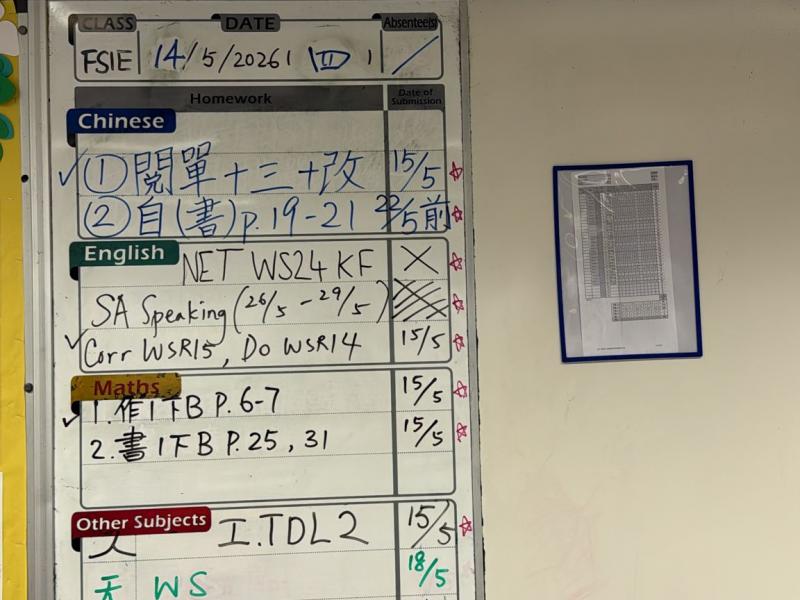 CLASS DATE Absentee(s)
FSIE 14/5/2026 (四) /
Homework Date of Submission
Chinese
✓ ① 閱單十三+改 15/5 ☆
② 自(書)p.19-21 22/5前 ☆
English
NET WS24 KF ✕ ☆
SA Speaking (26/5 - 29/5) ☆
✓ Corr WSR15, Do WSR14 15/5 ☆
Maths
✓ 1. 作1下B P.6-7 15/5 ☆
2. 書1下B P.25, 31 15/5 ☆
Other Subjects
工.TDL2 15/5 ☆
天 WS 18/5